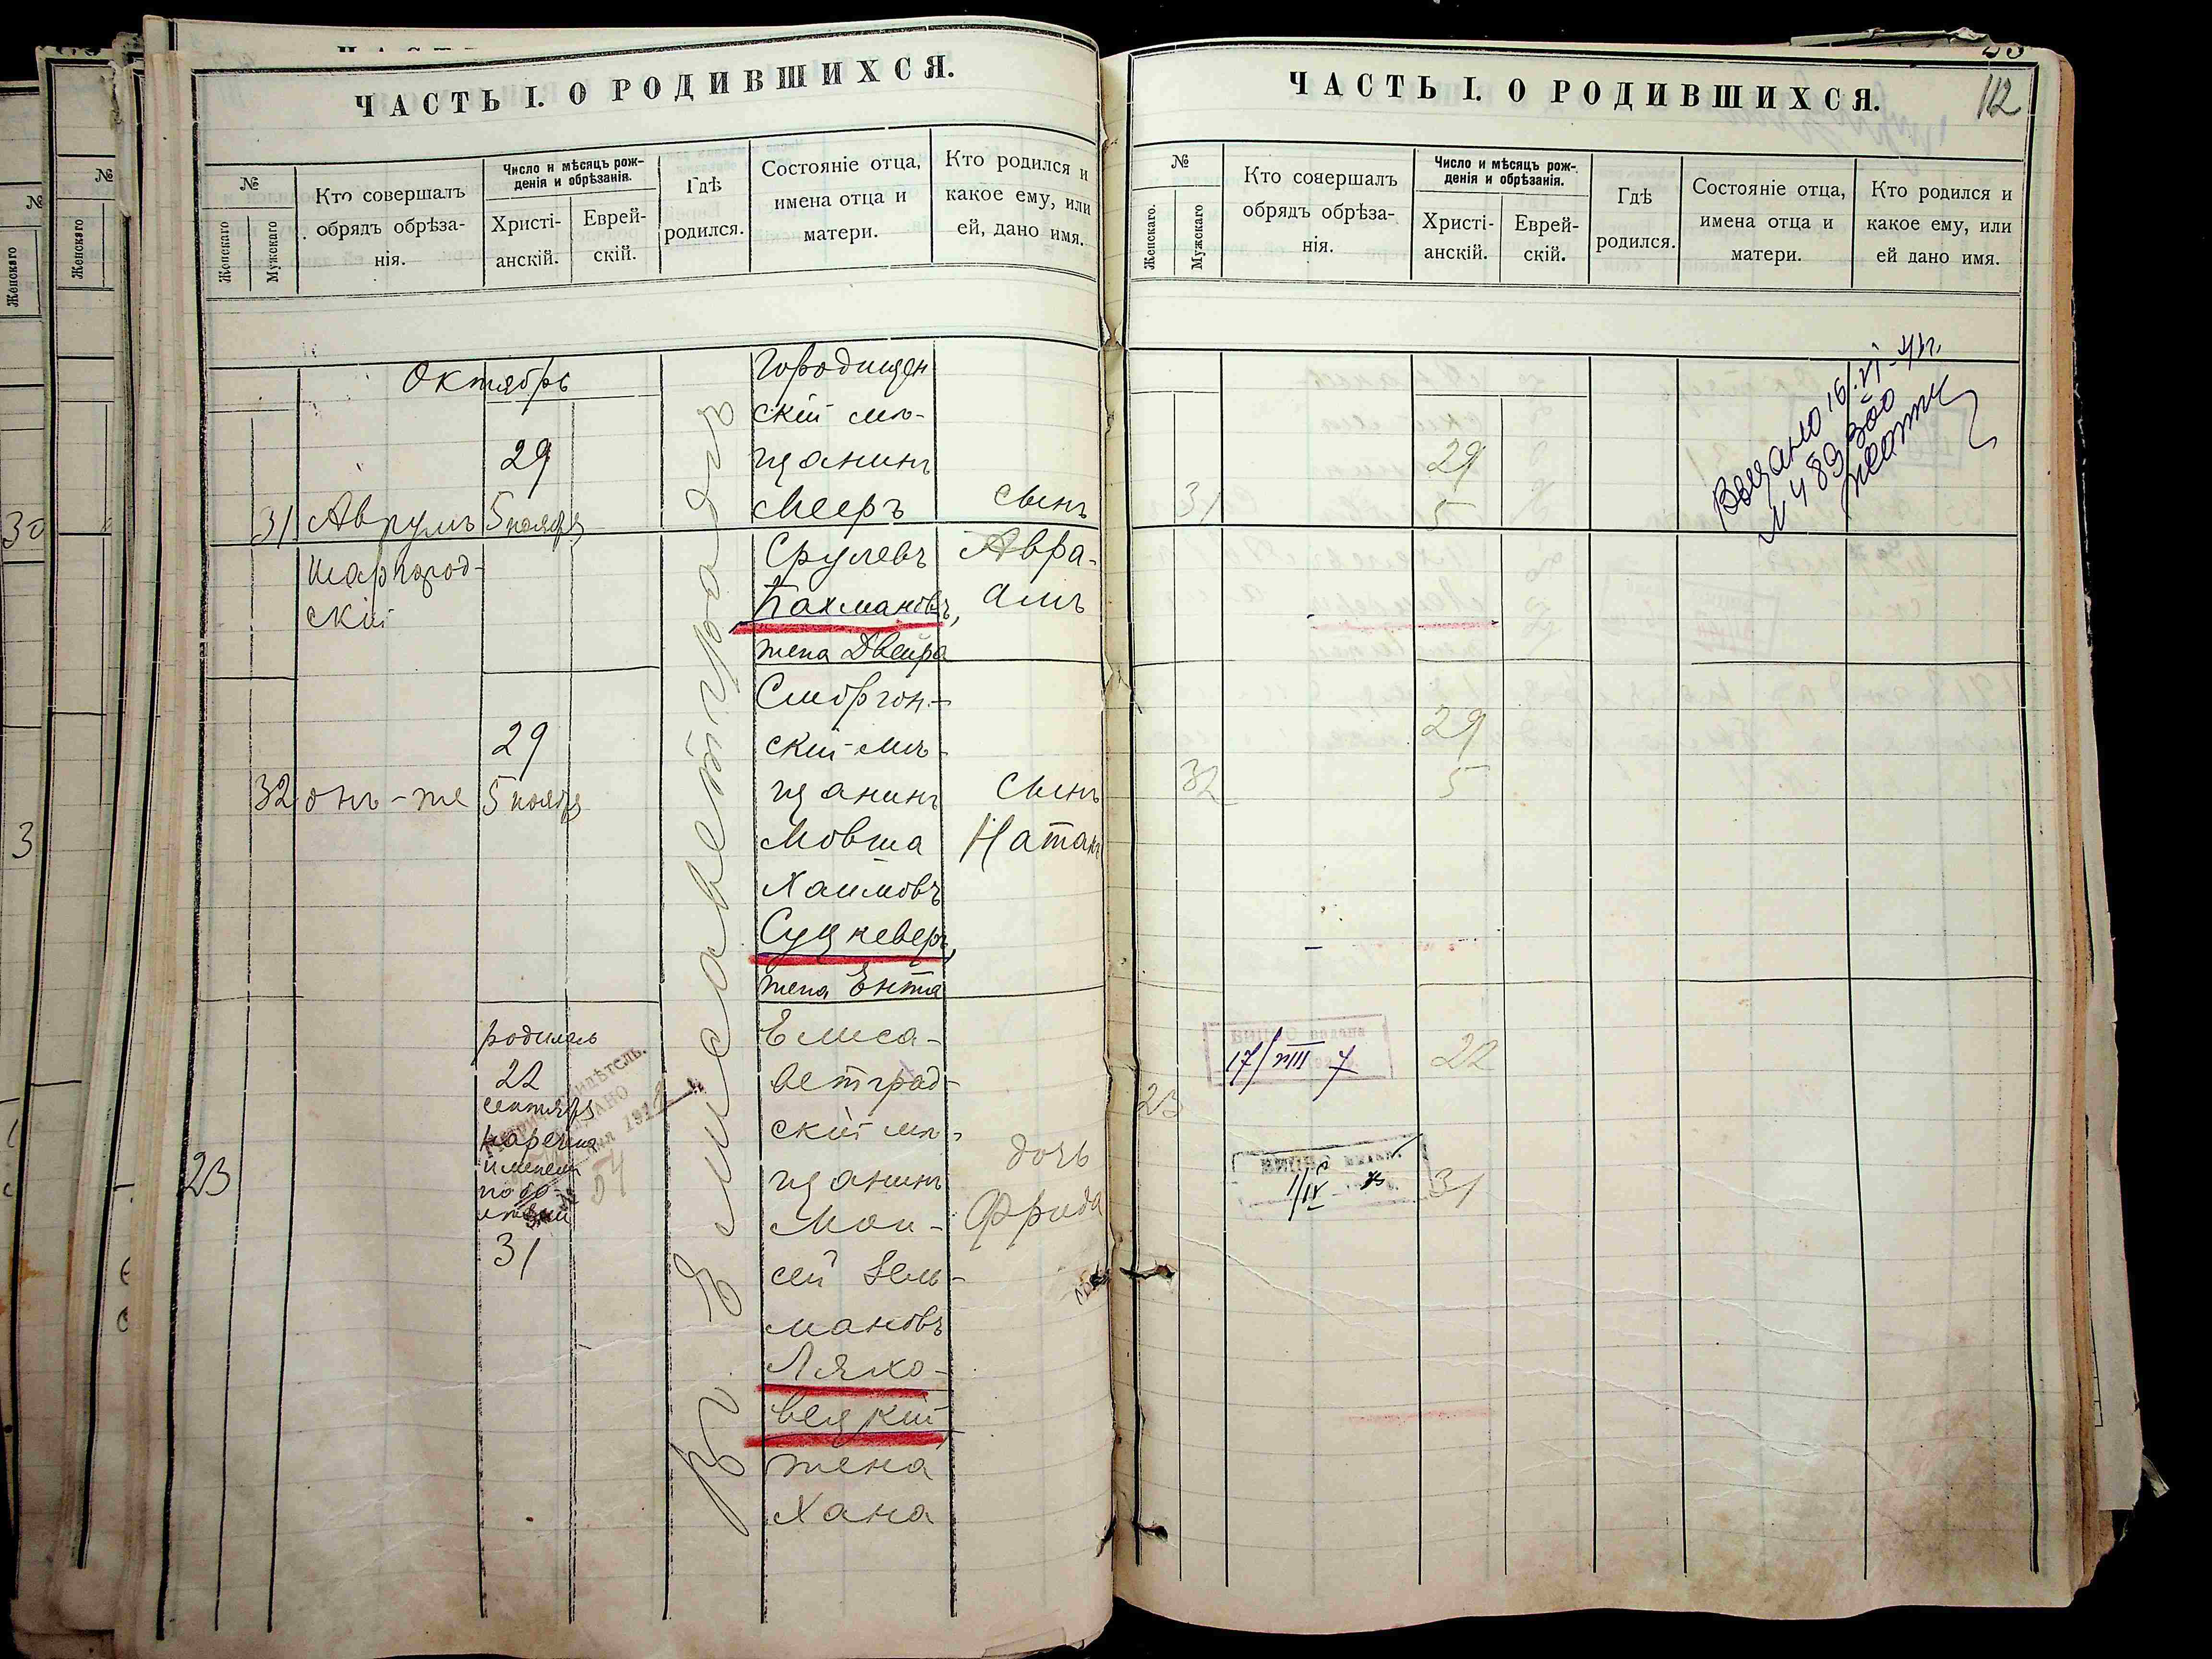 ЧАСТЬ I. О РОДИВШИХСЯ.
№
Женскаго
Мужскаго
Кто совершалъ
обрядъ обрѣза-
нія.
Число и мѣсяцъ рож-
денія и обрѣзанія.
Христі-
анскій.
Еврей-
скій.
Гдѣ
родился.
Состояніе отца,
имена отца и
матери.
Кто родился и
какое ему, или
ей, дано имя.
Октябрь
31
Аврумъ
Шаргород-
скій
29
5 ноября
Въ Елисаветградѣ
Городищен
скій мѣ-
щанинъ
Мееръ
Срулевъ
Пахмановъ,
жена Двейра
сынъ
Авра-
амъ
32
онъ-же
29
5 ноября
Сморгон-
скій мѣ-
щанинъ
Мовша
Хаимовъ
Суцкеверъ,
жена Ента
сынъ
Натанъ
23
родилась
22
сентября
наречена
именемъ
31
Елиса-
ветград-
скій мѣ-
щанинъ
Мои-
сей Зель-
мановъ
Ляхо-
вецкій
жена
Хана
дочь
Фрида
ЧАСТЬ I. О РОДИВШИХСЯ.
112
№
Женскаго.
Мужскаго
Кто совершалъ
обрядъ обрѣза-
нія.
Число и мѣсяцъ рож-
денія и обрѣзанія.
Христі-
анскій.
Еврей-
скій.
Гдѣ
родился.
Состояніе отца,
имена отца и
матери.
Кто родился и
какое ему, или
ей дано имя.
31
29
5
Выдано 16/VI-41г.
32
29
5
23
17/VIII 7
22
31